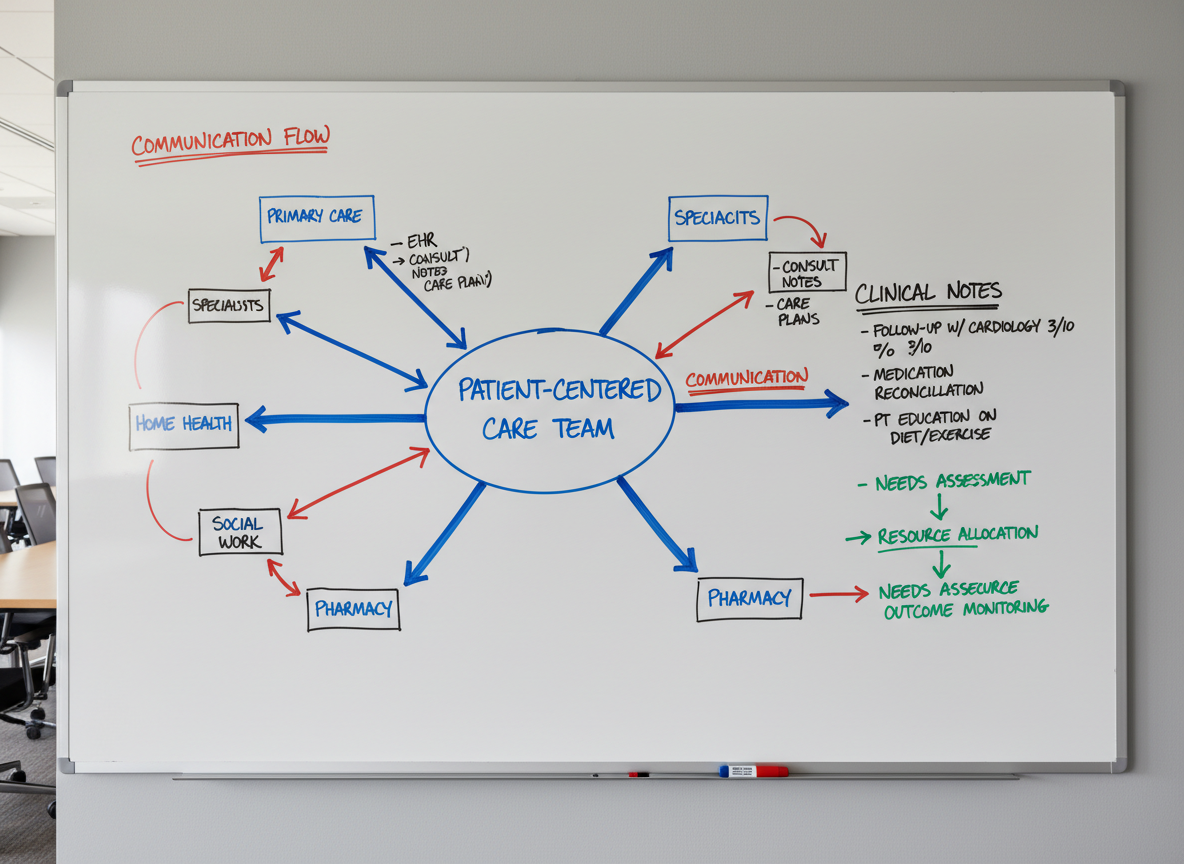 COMMUNICATION FLOW
PRIMARY CARE
- EHR
→ CONSULT
NOTES
CARE PLAN
SPECIALISTS
HOME HEALTH
SOCIAL
WORK
PHARMACY
PATIENT-CENTERED
CARE TEAM
SPECIACITS
- CONSULT
NOTES
- CARE
PLANS
COMMUNICATION
PHARMACY
CLINICAL NOTES
- FOLLOW-UP W/ CARDIOLOGY 3/10
% 3/10
- MEDICATION
RECONCILLATION
- PT EDUCATION ON
DIET/EXERCISE
- NEEDS ASSESSMENT
→ RESOURCE ALLOCATION
NEEDS ASSECURCE
OUTCOME MONITORING